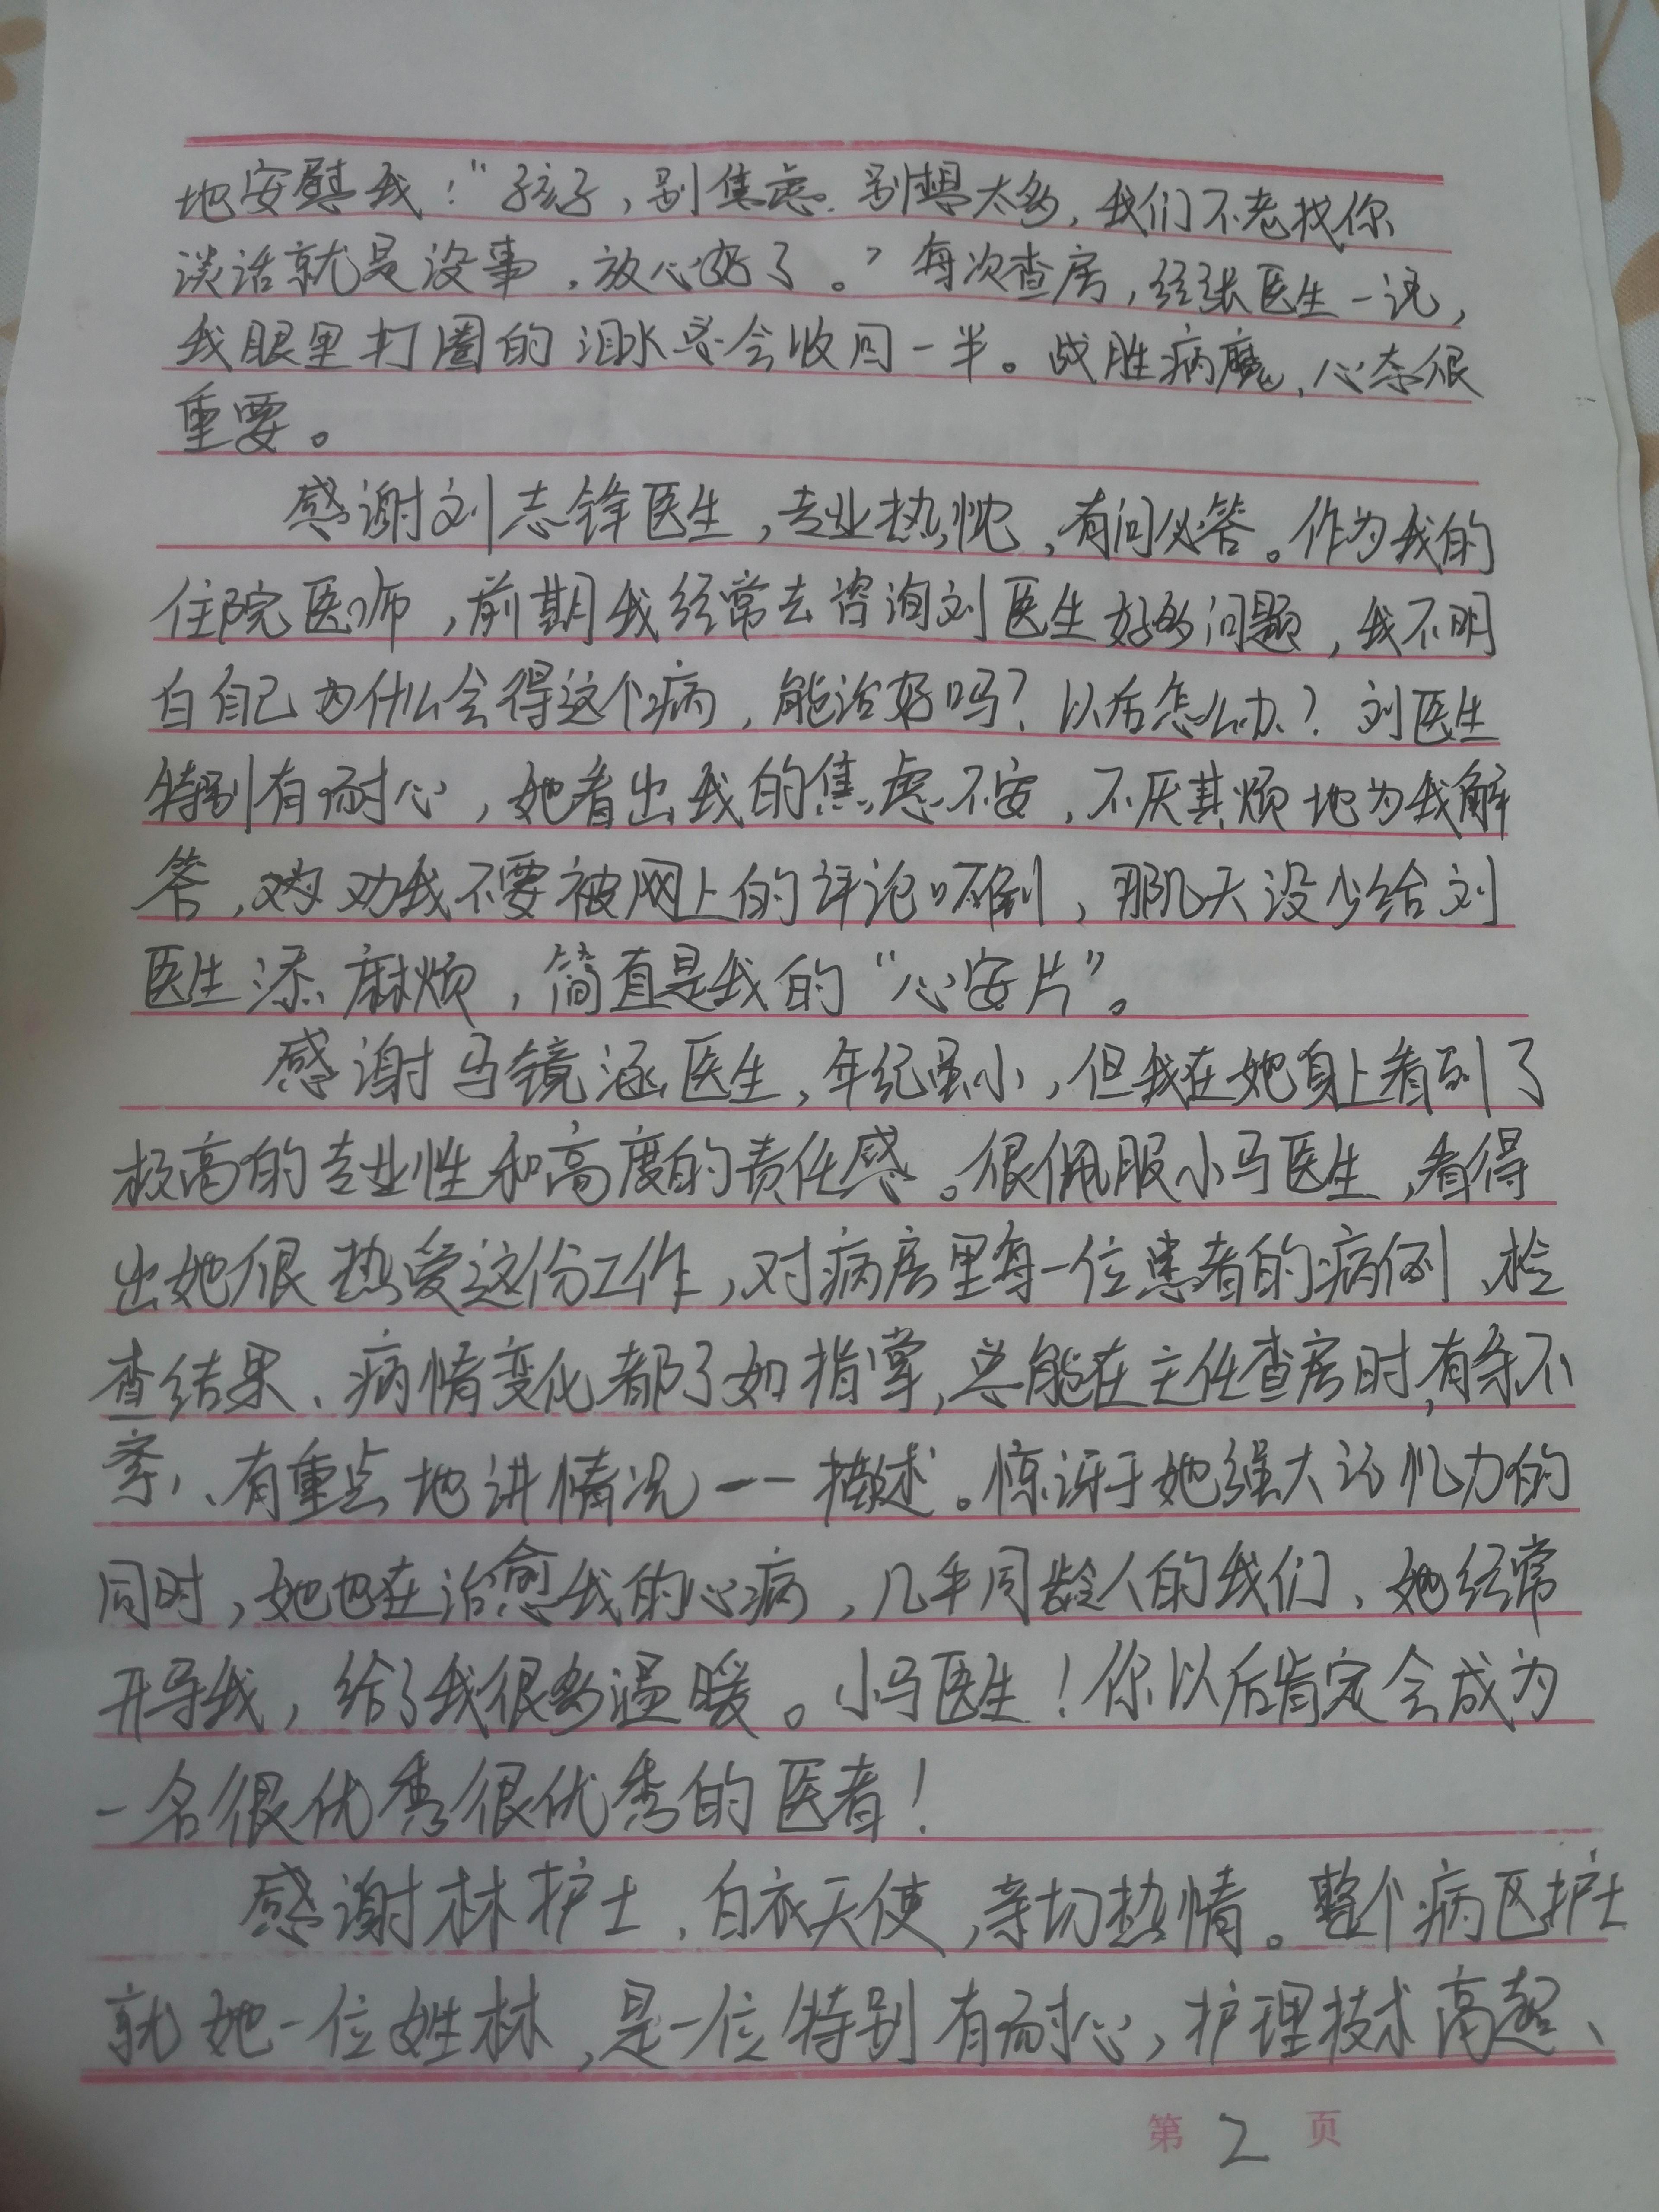 地安慰我：“孩子，别焦虑.别想太多，我们不老找你
谈话就是没事，放心好了。”每次查房，经张医生一说，
我眼里打圈的泪水总会收回一半。战胜病魔，心态很
重要。
感谢刘志锋医生，专业热忱，有问必答。作为我的
住院医师，前期我经常去咨询刘医生好多问题，我不明
白自己为什么会得这个病，能治好吗？以后怎么办？刘医生
特别有耐心，她看出我的焦虑不安，不厌其烦地为我解
答，劝我不要被网上的评论吓倒，那几天没少给刘
医生添麻烦，简直是我的“心安片”。
感谢马镜涵医生，年纪虽小，但我在她身上看到了
极高的专业性和高度的责任感。很佩服小马医生，看得
出她很热爱这份工作，对病房里每一位患者的病例、检
查结果、病情变化都了如指掌，总能在主任查房时，有条不
紊、有重点地讲情况一一描述。惊讶于她强大记忆力的
同时，她也在治愈我的心病，几乎同龄人的我们、她经常
开导我，给了我很多温暖。小马医生！你以后肯定会成为
一名很优秀很优秀的医者！
感谢林护士，白衣天使，亲切热情。整个病区护士
就她一位姓林，是一位特别有耐心，护理技术高超、
第 2 页